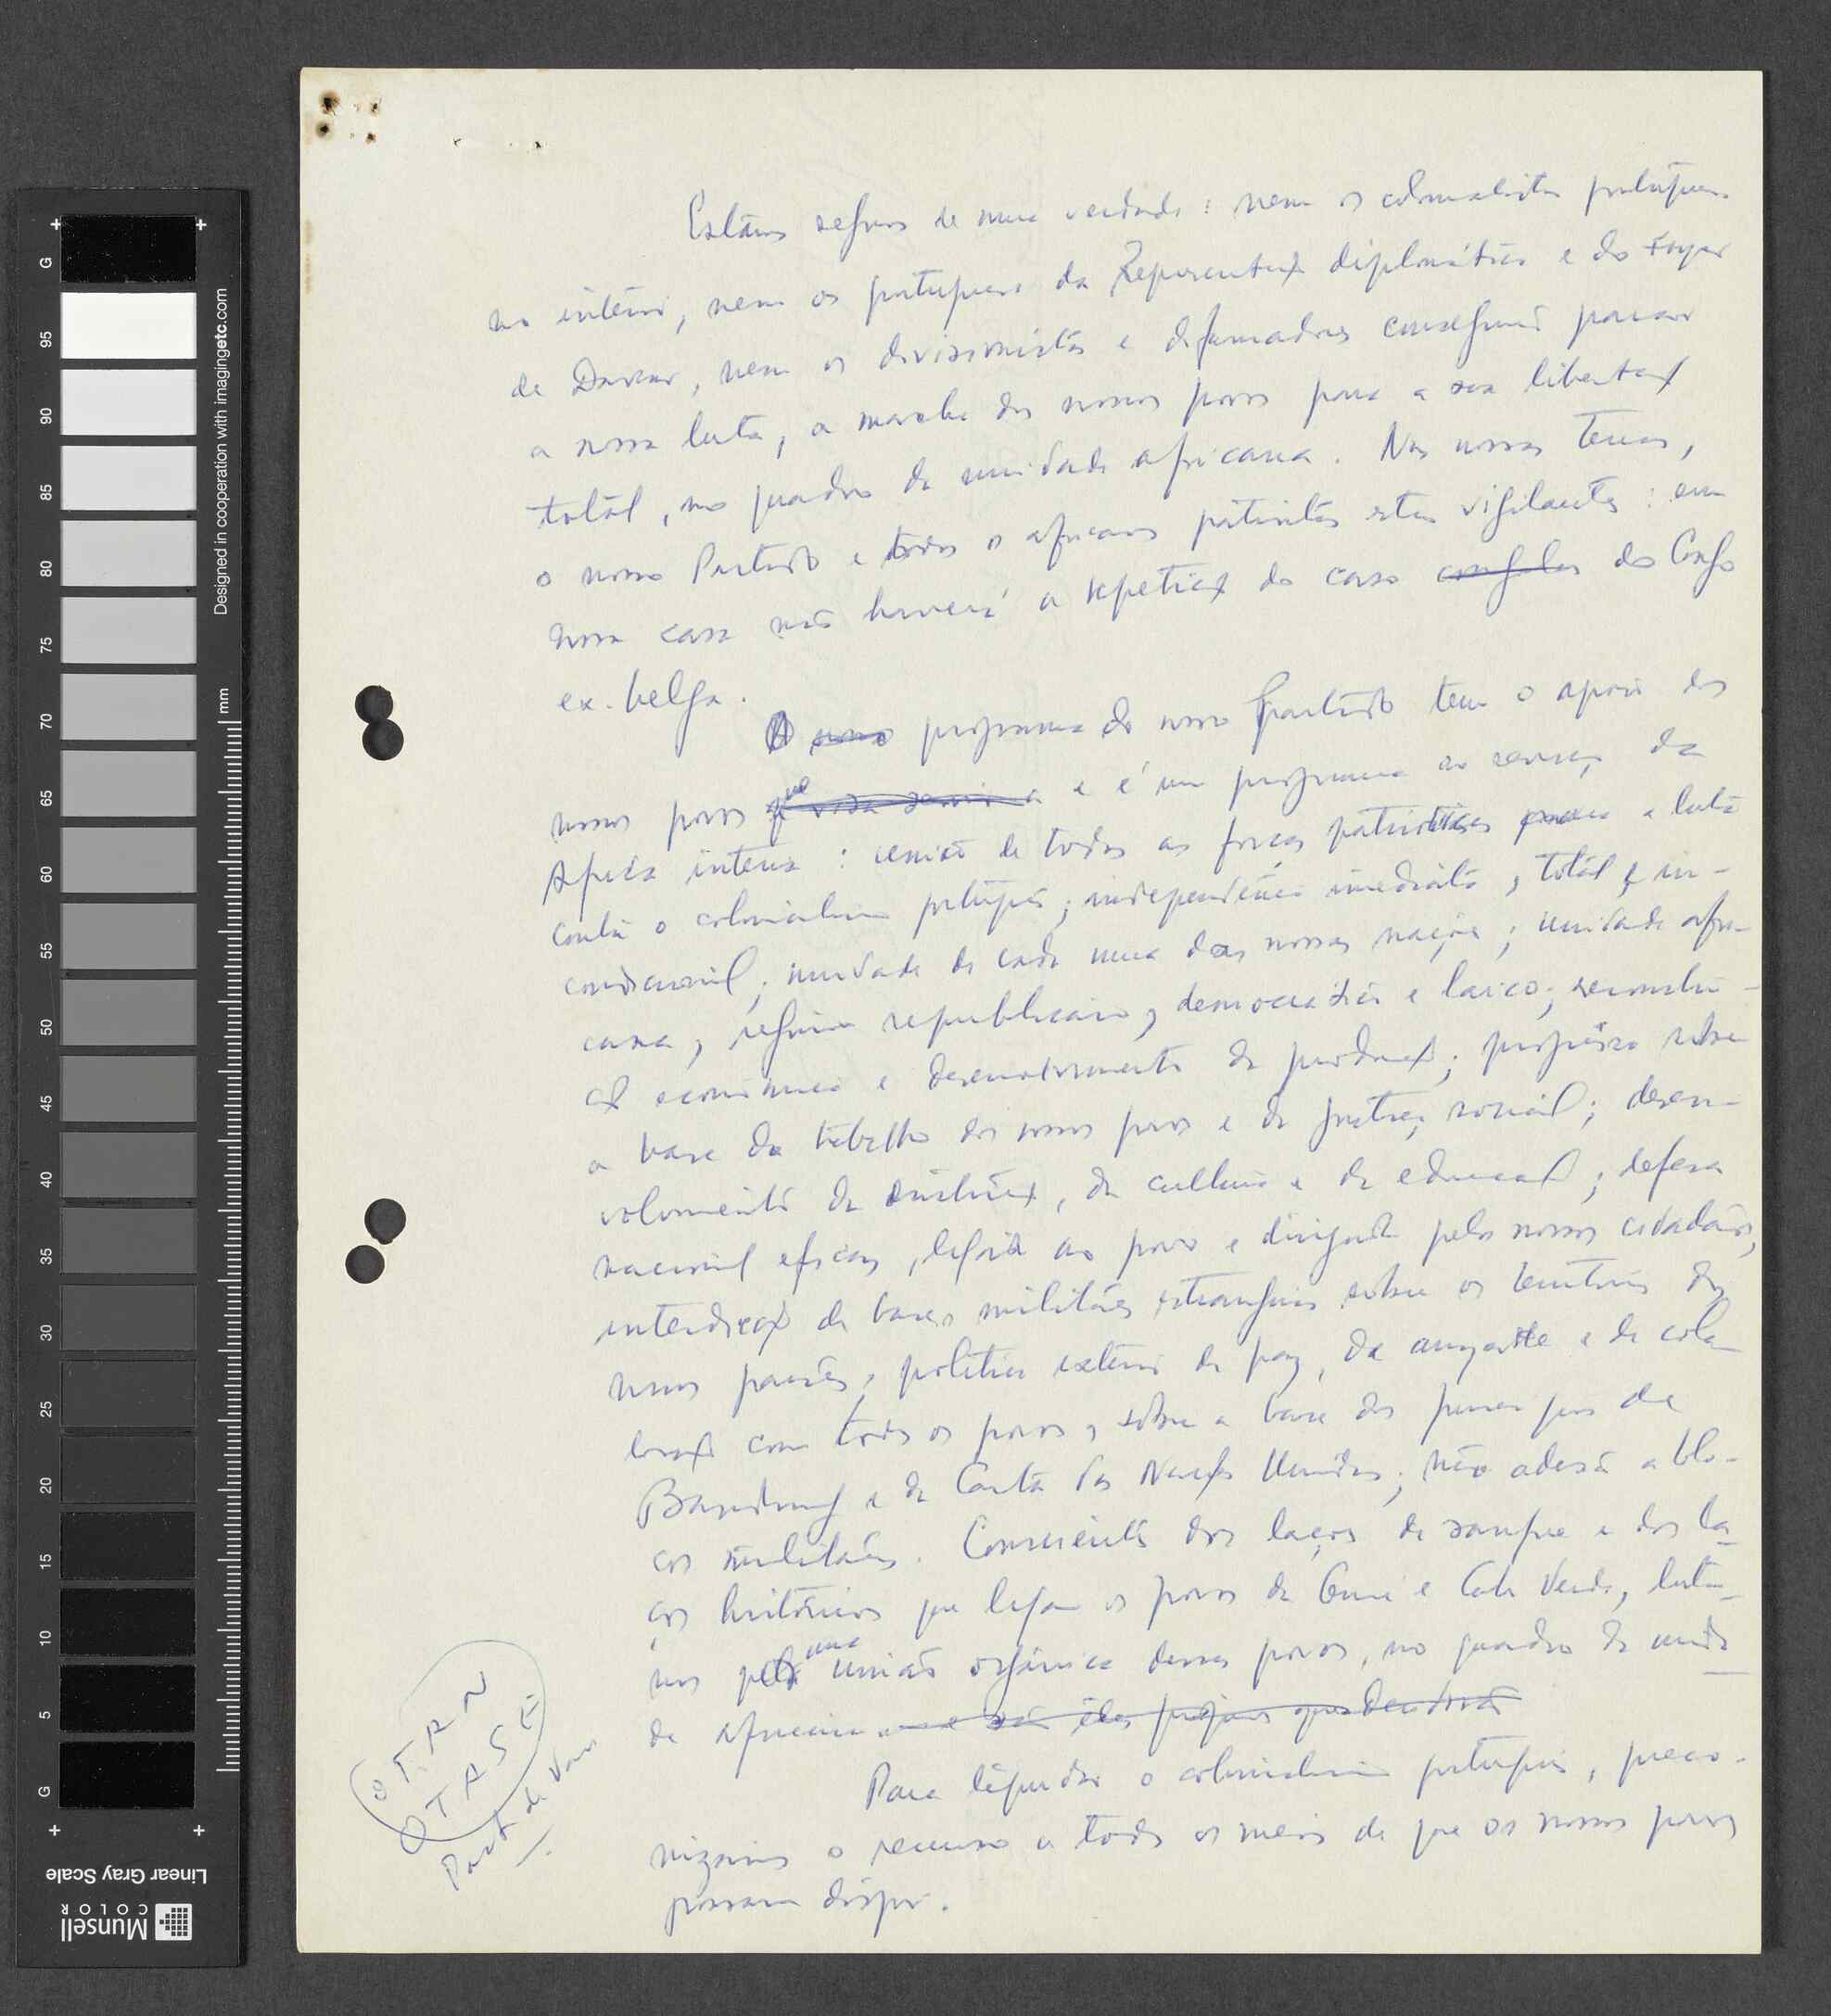 Estamos seguros de uma verdade : nem os colonialistas portugueses
no interior, nem os portugueses da Representação diplomática e do Foyer
de Dakar, nem os divisionistas e difamadores conseguirão parar
a nossa luta, a marcha dos nossos povos para a sua libertação
total, no quadro da unidade africana. Nas nossas terras,
o nosso Partido e todos os africanos patriotas estão vigilantes : em
nossa casa não haverá a repetição do caso congolês do Congo
ex-belga.
O nosso programa do nosso Partido tem o apoio dos
nossos povos que e é um programa ao serviço da
África inteira : união de todas as forças patrióticas para a luta
contra o colonialismo português ; independência imediata, total e in-
condicional ; unidade de cada uma das nossas nações ; unidade afri-
cana ; regime republicano, democrático e laico ; reconstru-
ção económica e desenvolvimento da produção ; progresso sobre
a base do trabalho dos nossos povos e da justiça social ; desen-
volvimento da instrução, da cultura e da educação ; defesa
nacional eficaz, ligada ao povo e dirigida pelos nossos cidadãos,
interdição de bases militares estrangeiras sobre os territórios dos
nossos países, política exterior de paz, de amizade e de cola-
boração com todos os povos, sobre a base dos princípios de
Bandung e da Carta das Nações Unidas ; não adesão a blo-
cos militares. Conscientes dos laços de sangue e dos la-
ços históricos que ligam os povos da Guiné e Cabo Verde, luta-
mos pela uma união orgânica desses povos, no quadro da unida-
de africana
Para liquidar o colonialismo português, preco-
nizamos o recurso a todos os meios de que os nossos povos
possam dispor.
OTAN
OTASE
Pact de Vars
G 95 90 85 80 75 70 65 60 55 50 45 40 35 30 25 20 15 10 5 G
mm
Designed in cooperation with imagingetc.com
Linear Gray Scale
Munsell
COLOR